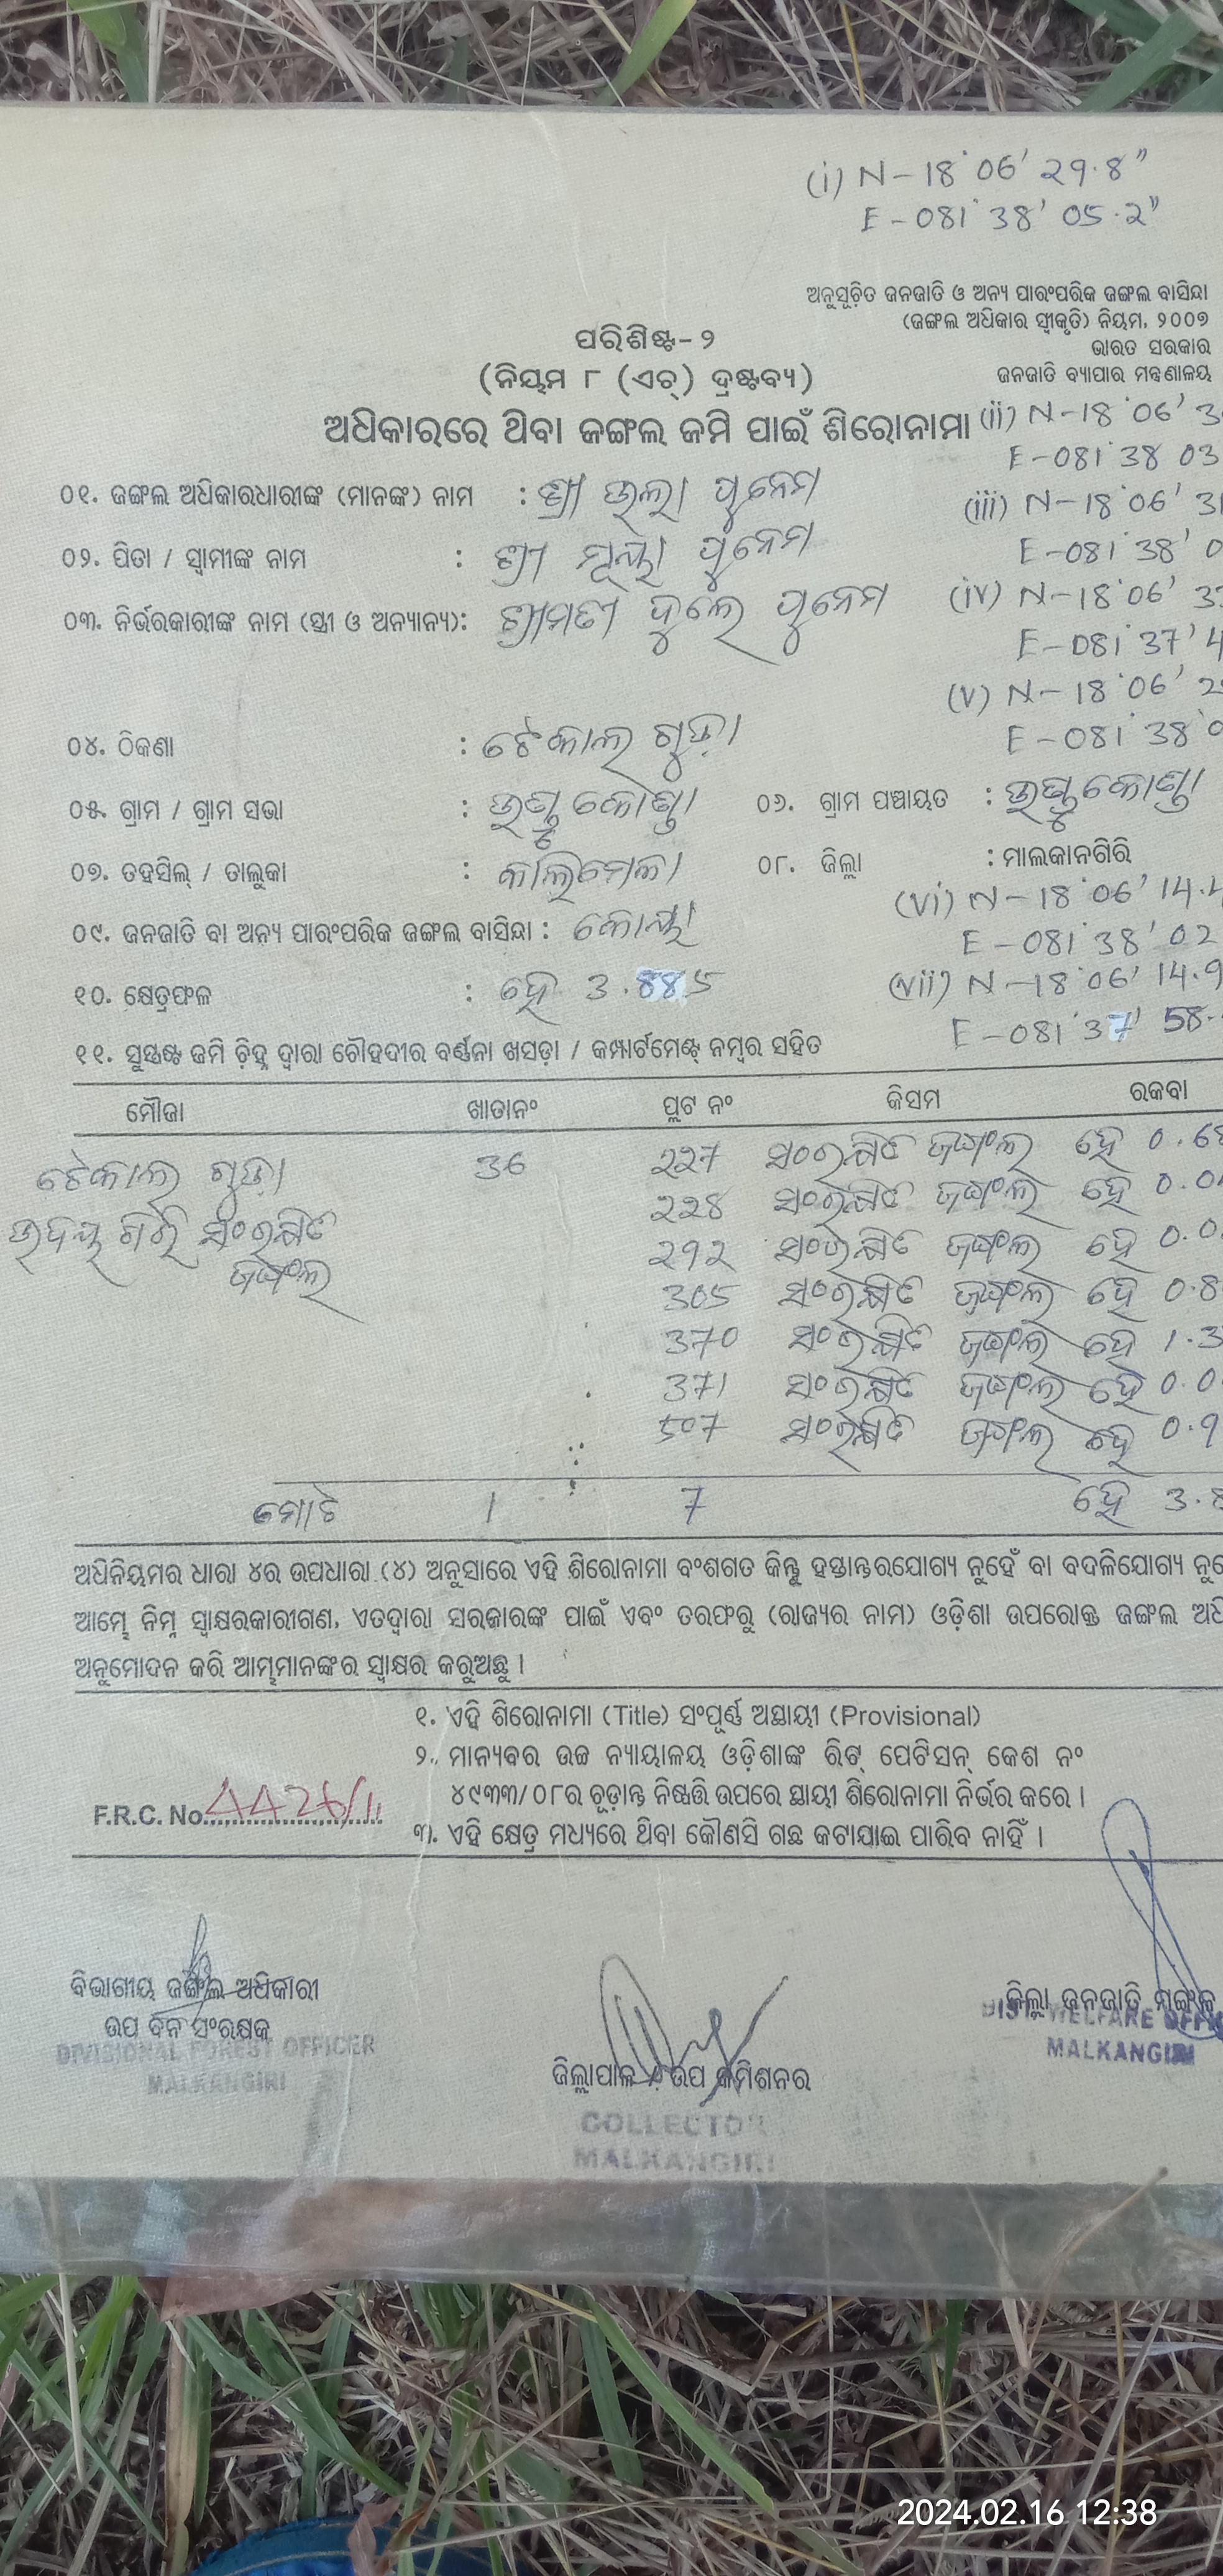 (i) N-18°06' 29.8"
E-081°38' 05.2"
ଅନୁସୂଚିତ ଜନଜାତି ଓ ଅନ୍ୟ ପାରଂପରିକ ଜଙ୍ଗଲ ବାସିନ୍ଦା
(ଜଙ୍ଗଲ ଅଧିକାର ସ୍ୱୀକୃତି) ନିୟମ, ୨୦୦୭
ଭାରତ ସରକାର
ଜନଜାତି ବ୍ୟାପାର ମନ୍ତ୍ରଣାଳୟ
ପରିଶିଷ୍ଟ-୨
(ନିୟମ ୮ (ଏଚ୍) ଦ୍ରଷ୍ଟବ୍ୟ)
ଅଧିକାରରେ ଥିବା ଜଙ୍ଗଲ ଜମି ପାଇଁ ଶିରୋନାମା
(ii) N-18°06' 3
E-081°38 03
୦୧. ଜଙ୍ଗଲ ଅଧିକାରଧାରୀଙ୍କ (ମାନଙ୍କ) ନାମ : ଶ୍ରୀ ଉଲା ପୁନେମ
(iii) N-18°06' 31
E-081°38' 0
୦୨. ପିତା / ସ୍ୱାମୀଙ୍କ ନାମ : ଶ୍ରୀ ମୂୟା ପୁନେମ
(iv) N-18°06' 3
E-081°37' 4
୦୩. ନିର୍ଭରକାରୀଙ୍କ ନାମ (ସ୍ତ୍ରୀ ଓ ଅନ୍ୟାନ୍ୟ): ଶ୍ରୀମତୀ ଦୁଲେ ପୁନେମ
(v) N-18°06' 2
E-081°38' 0
୦୪. ଠିକଣା : ଟେକାଲ ଗୁଡ଼ା
୦୫. ଗ୍ରାମ / ଗ୍ରାମ ସଭା : ୦୬. ଗ୍ରାମ ପଞ୍ଚାୟତ :
୦୭. ତହସିଲ୍ / ତାଲୁକା : କାଲିମେଳା ୦୮. ଜିଲ୍ଲା : ମାଲକାନଗିରି
(vi) N-18°06' 14.4
E-081°38' 02
୦୯. ଜନଜାତି ବା ଅନ୍ୟ ପାରଂପରିକ ଜଙ୍ଗଲ ବାସିନ୍ଦା : କୋୟା
୧୦. କ୍ଷେତ୍ରଫଳ : ହେ 3.885
(vii) N-18°06' 14.9
E-081°37' 58.
୧୧. ସୁସ୍ପଷ୍ଟ ଜମି ଚିହ୍ନ ଦ୍ୱାରା ଚୌହଦୀର ବର୍ଣ୍ଣନା ଖସଡ଼ା / କମ୍ପାର୍ଟମେଣ୍ଟ୍ ନମ୍ବର ସହିତ
ମୌଜା ଖାତାନଂ ପ୍ଲଟ ନଂ କିସମ ରକବା
ଟେକାଲ ଗୁଡ଼ା 36 227 ସଂରକ୍ଷିତ ଜଙ୍ଗଲ ହେ 0.6
ଉଦୟ ଗିରି ସଂରକ୍ଷିତ 228 ସଂରକ୍ଷିତ ଜଙ୍ଗଲ ହେ 0.0
ଜଙ୍ଗଲ 292 ସଂରକ୍ଷିତ ଜଙ୍ଗଲ ହେ 0.0
305 ସଂରକ୍ଷିତ ଜଙ୍ଗଲ ହେ 0.8
370 ସଂରକ୍ଷିତ ଜଙ୍ଗଲ ହେ 1.3
371 ସଂରକ୍ଷିତ ଜଙ୍ଗଲ ହେ 0.0
507 ସଂରକ୍ଷିତ ଜଙ୍ଗଲ ହେ 0.9
ମୋଟ 1 7 ହେ 3.8
ଅଧିନିୟମର ଧାରା ୪ର ଉପଧାରା (୪) ଅନୁସାରେ ଏହି ଶିରୋନାମା ବଂଶଗତ କିନ୍ତୁ ହସ୍ତାନ୍ତରଯୋଗ୍ୟ ନୁହେଁ ବା ବଦଳିଯୋଗ୍ୟ
ଆମ୍ଭେ ନିମ୍ନ ସ୍ୱାକ୍ଷରକାରୀଗଣ, ଏତଦ୍ୱାରା ସରକାରଙ୍କ ପାଇଁ ଏବଂ ତରଫରୁ (ରାଜ୍ୟର ନାମ) ଓଡ଼ିଶା ଉପରୋକ୍ତ ଜଙ୍ଗଲ
ଅନୁମୋଦନ କରି ଆମ୍ଭମାନଙ୍କର ସ୍ୱାକ୍ଷର କରୁଅଛୁ ।
୧. ଏହି ଶିରୋନାମା (Title) ସଂପୂର୍ଣ୍ଣ ଅସ୍ଥାୟୀ (Provisional)
୨. ମାନ୍ୟବର ଉଚ୍ଚ ନ୍ୟାୟାଳୟ ଓଡ଼ିଶାଙ୍କ ରିଟ୍ ପେଟିସନ୍ କେଶ ନଂ
୪୯୩୩/୦୮ର ଚୂଡ଼ାନ୍ତ ନିଷ୍ପତ୍ତି ଉପରେ ସ୍ଥାୟୀ ଶିରୋନାମା ନିର୍ଭର କରେ ।
F.R.C. No.
୩. ଏହି କ୍ଷେତ୍ର ମଧ୍ୟରେ ଥିବା କୌଣସି ଗଛ କଟାଯାଇ ପାରିବ ନାହିଁ ।
ବିଭାଗୀୟ ଜଙ୍ଗଲ ଅଧିକାରୀ
ଉପ ବନ ସଂରକ୍ଷକ
DIVISIONAL FOREST OFFICER
MALKANGIRI
ଜିଲ୍ଲାପାଳ / ଉପ କମିଶନର
COLLECTOR
MALKANGIRI
ଜିଲ୍ଲା ଜନଜାତି ମଙ୍ଗଳ
WELFARE OFFIC
MALKANGIRI
2024.02.16 12:38